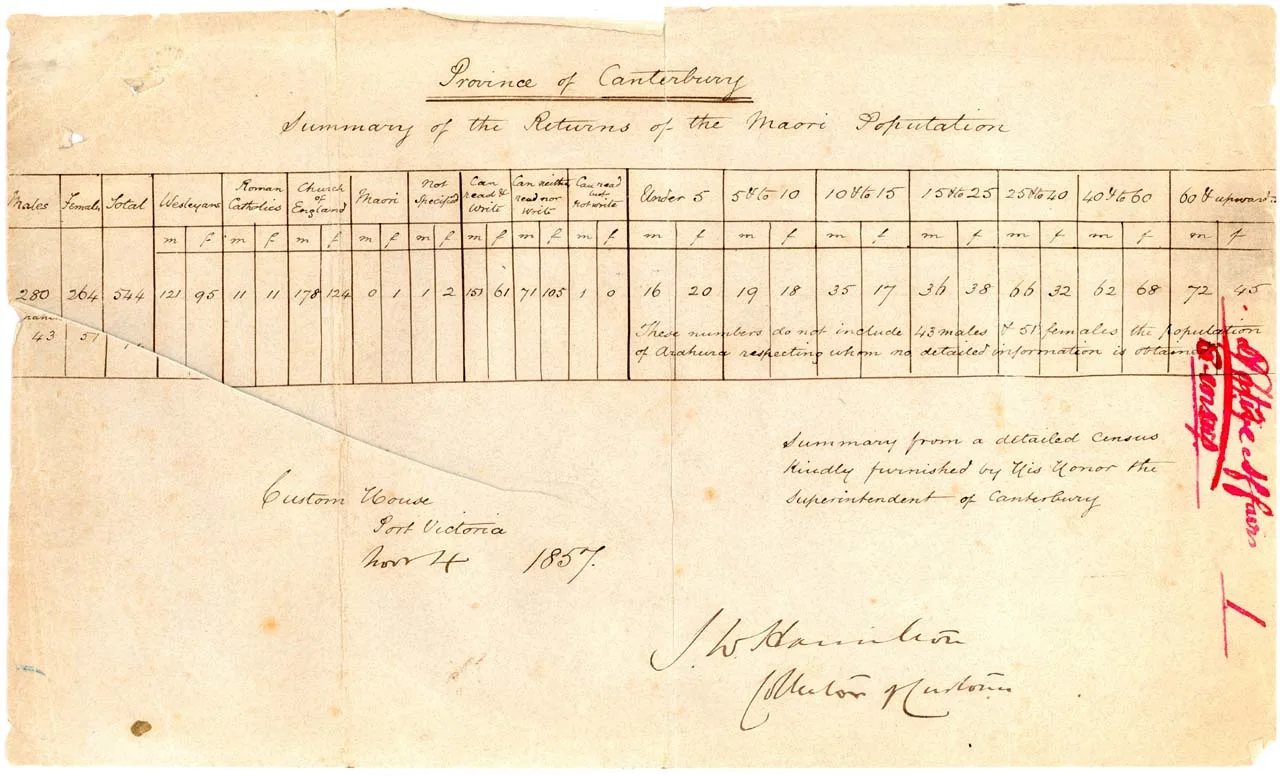 Province of Canterbury
Summary of the Returns of the Maori Population
Males Females Total Wesleyans Roman Catholics Church of England Maori Not Specified Can read & Write Can neither read nor Write Can read but not write Under 5 5 & to 10 10 & to 15 15 & to 25 25 & to 40 40 & to 60 60 & upwards
m f m f m f m f m f m f m f m f m f m f m f m f m f m f m f
280 264 544 121 95 11 11 178 124 0 1 1 2 151 61 71 105 1 0 16 20 19 18 35 17 36 38 66 32 62 68 72 45
43 51
These numbers do not include 43 males & 51 females the population
of Arahura respecting whom no detailed information is obtained
Summary from a detailed Census
Kindly furnished by His Honor the
Superintendent of Canterbury
Custom House
Port Victoria
Novr 4 1857.
J. W. Hamilton
Collector of Customs
Native Affairs
Census
1